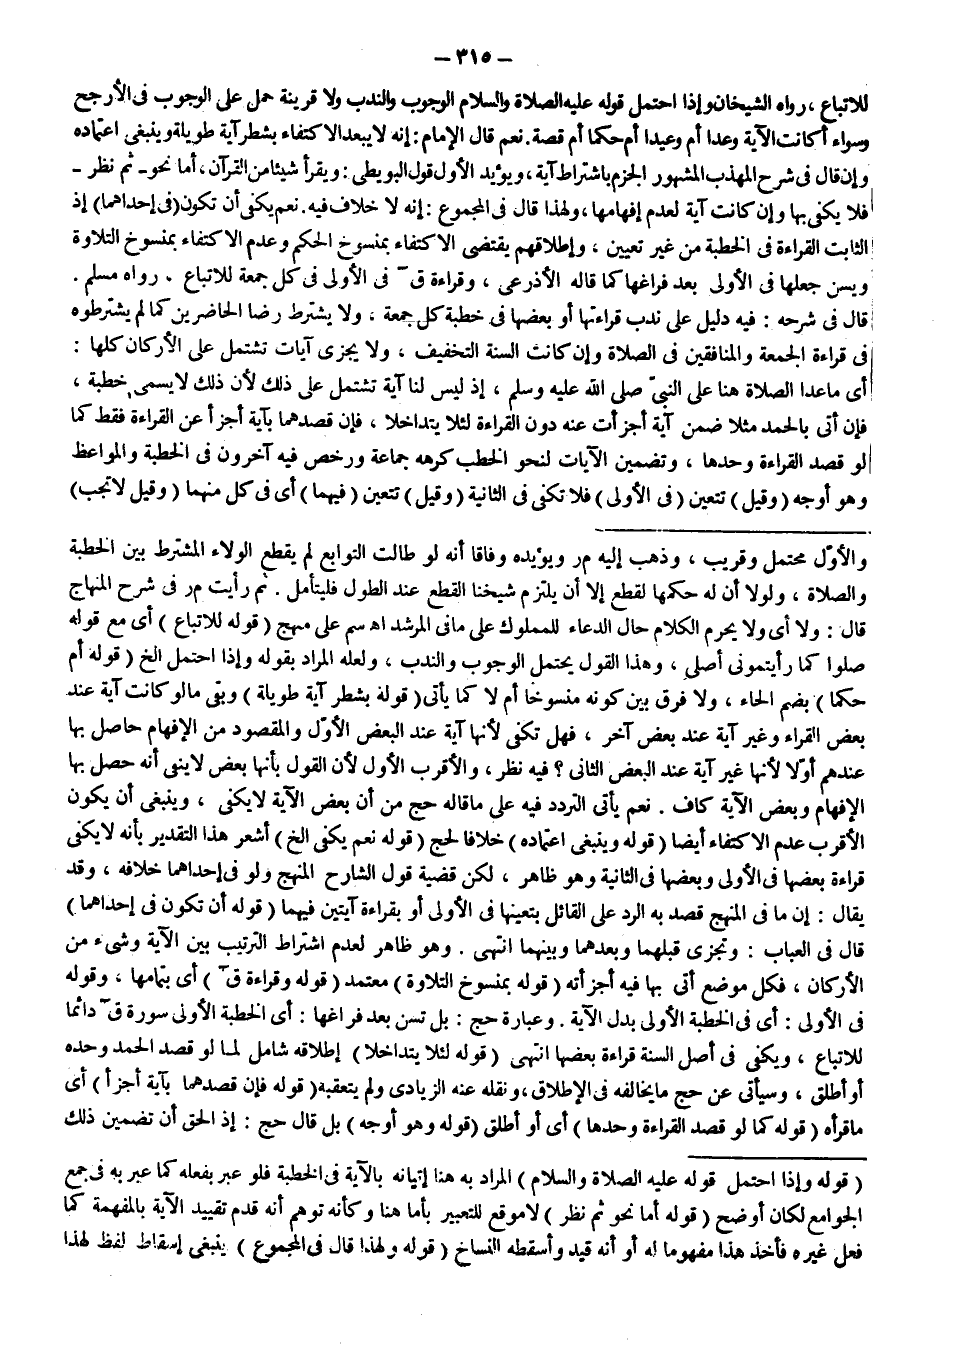 – ٣١٥ –
للاتباع ، رواه الشيخان وإذا احتمل قوله عليه الصلاة والسلام الوجوب والندب ولا قرينة حمل على الوجوب فى الأرجح
وسواء أكانت الآية وعدا أم وعيدا أم حكما أم قصة. نعم قال الإمام : إنه لا يبعد الاكتفاء بشطر آية طويلة وينبغى اعتماده
وإن قال فى شرح المهذب المشهور الجزم باشتراط آية ، ويؤيد الأول قول البويطى : ويقرأ شيئا من القرآن ، أما نحو ـ ثم نظر ـ
فلا يكفى بها وإن كانت آية لعدم إفهامها ، ولهذا قال فى المجموع : إنه لا خلاف فيه. نعم يكفى أن تكون (فى إحداهما) إذ
الثابت القراءة فى الخطبة من غير تعيين ، وإطلاقهم يقتضى الاكتفاء بمنسوخ الحكم وعدم الاكتفاء بمنسوخ التلاوة
ويسن جعلها فى الأولى بعد فراغها كما قاله الأذرعى ، وقراءة قۤ فى الأولى فى كل جمعة للاتباع . رواه مسلم .
قال فى شرحه : فيه دليل على ندب قراءتها أو بعضها فى خطبة كل جمعة ، ولا يشترط رضا الحاضرين كما لم يشترطوه
فى قراءة الجمعة والمنافقين فى الصلاة وإن كانت السنة التخفيف ، ولا يجزى آيات تشتمل على الأركان كلها :
أى ماعدا الصلاة هنا على النبىّ صلى الله عليه وسلم ، إذ ليس لنا آية تشتمل على ذلك لأن ذلك لايسمى خطبة ،
فإن أتى بالحمد مثلا ضمن آية أجزأت عنه دون القراءة لئلا يتداخلا ، فإن قصدهما بآية أجزأ عن القراءة فقط كما
لو قصد القراءة وحدها ، وتضمين الآيات لنحو الخطب كرهه جماعة ورخص فيه آخرون فى الخطبة والمواعظ
وهو أوجه (وقيل) تتعين (فى الأولى) فلا تكفى فى الثانية (وقيل) تتعين (فيهما) أى فى كل منهما (وقيل لاتجب)
والأوّل محتمل وقريب ، وذهب إليه مر ويؤيده وفاقا أنه لو طالت التوابع لم يقطع الولاء المشترط بين الخطبة
والصلاة ، ولولا أن له حكمها لقطع إلا أن يلتزم شيخنا القطع عند الطول فليتأمل . ثم رأيت مر فى شرح المنهاج
قال : ولا أى ولا يحرم الكلام حال الدعاء للمملوك على مافى المرشد اه سم على منهج (قوله للاتباع) أى مع قوله
صلوا كما رأيتمونى أصلى ، وهذا القول يحتمل الوجوب والندب ، ولعله المراد بقوله وإذا احتمل الخ (قوله أم
حكما) بضم الحاء ، ولا فرق بين كونه منسوخا أم لا كما يأتى (قوله بشطر آية طويلة) وبقى مالو كانت آية عند
بعض القراء وغير آية عند بعض آخر ، فهل تكفى لأنها آية عند البعض الأوّل والمقصود من الإفهام حاصل بها
عندهم أولا لأنها غير آية عند البعض الثانى ؟ فيه نظر ، والأقرب الأول لأن القول بأنها بعض لاينفى أنه حصل بها
الإفهام وبعض الآية كاف . نعم يأتى التردد فيه على ماقاله حج من أن بعض الآية لايكفى ، وينبغى أن يكون
الأقرب عدم الاكتفاء أيضا (قوله وينبغى اعتماده) خلافا لحج (قوله نعم يكفى الخ) أشعر هذا التقدير بأنه لايكفى
قراءة بعضها فى الأولى وبعضها فى الثانية وهو ظاهر ، لكن قضية قول الشارح المنهج ولو فى إحداهما خلافه ، وقد
يقال : إن ما فى المنهج قصد به الرد على القائل بتعينها فى الأولى أو بقراءة آيتين فيهما (قوله أن تكون فى إحداهما)
قال فى العباب : وتجزى قبلهما وبعدهما وبينهما انتهى . وهو ظاهر لعدم اشتراط الترتيب بين الآية وشىء من
الأركان ، فكل موضع أتى بها فيه أجزأته (قوله بمنسوخ التلاوة) معتمد (قوله وقراءة قۤ) أى بتمامها ، وقوله
فى الأولى : أى فى الخطبة الأولى بدل الآية . وعبارة حج : بل تسن بعد فراغها : أى الخطبة الأولى سورة قۤ دائما
للاتباع ، ويكفى فى أصل السنة قراءة بعضها انتهى (قوله لئلا يتداخلا) إطلاقه شامل لما لو قصد الحمد وحده
أو أطلق ، وسيأتى عن حج مايخالفه فى الإطلاق ، ونقله عنه الزيادى ولم يتعقبه (قوله فإن قصدهما بآية أجزأ) أى
ماقرأه (قوله كما لو قصد القراءة وحدها) أى أو أطلق (قوله وهو أوجه) بل قال حج : إذ الحق أن تضمين ذلك
(قوله وإذا احتمل قوله عليه الصلاة والسلام) المراد به هنا إتيانه بالآية فى الخطبة فلو عبر بفعله كما عبر به فى جمع
الجوامع لكان أوضح (قوله أما نحو ثم نظر) لاموقع للتعبير بأما هنا وكأنه توهم أنه قدم تقييد الآية بالمفهمة كما
فعل غيره فأخذ هذا مفهوما له أو أنه قيد وأسقطه النساخ (قوله ولهذا قال فى المجموع) ينبغى إسقاط لفظ لهذا